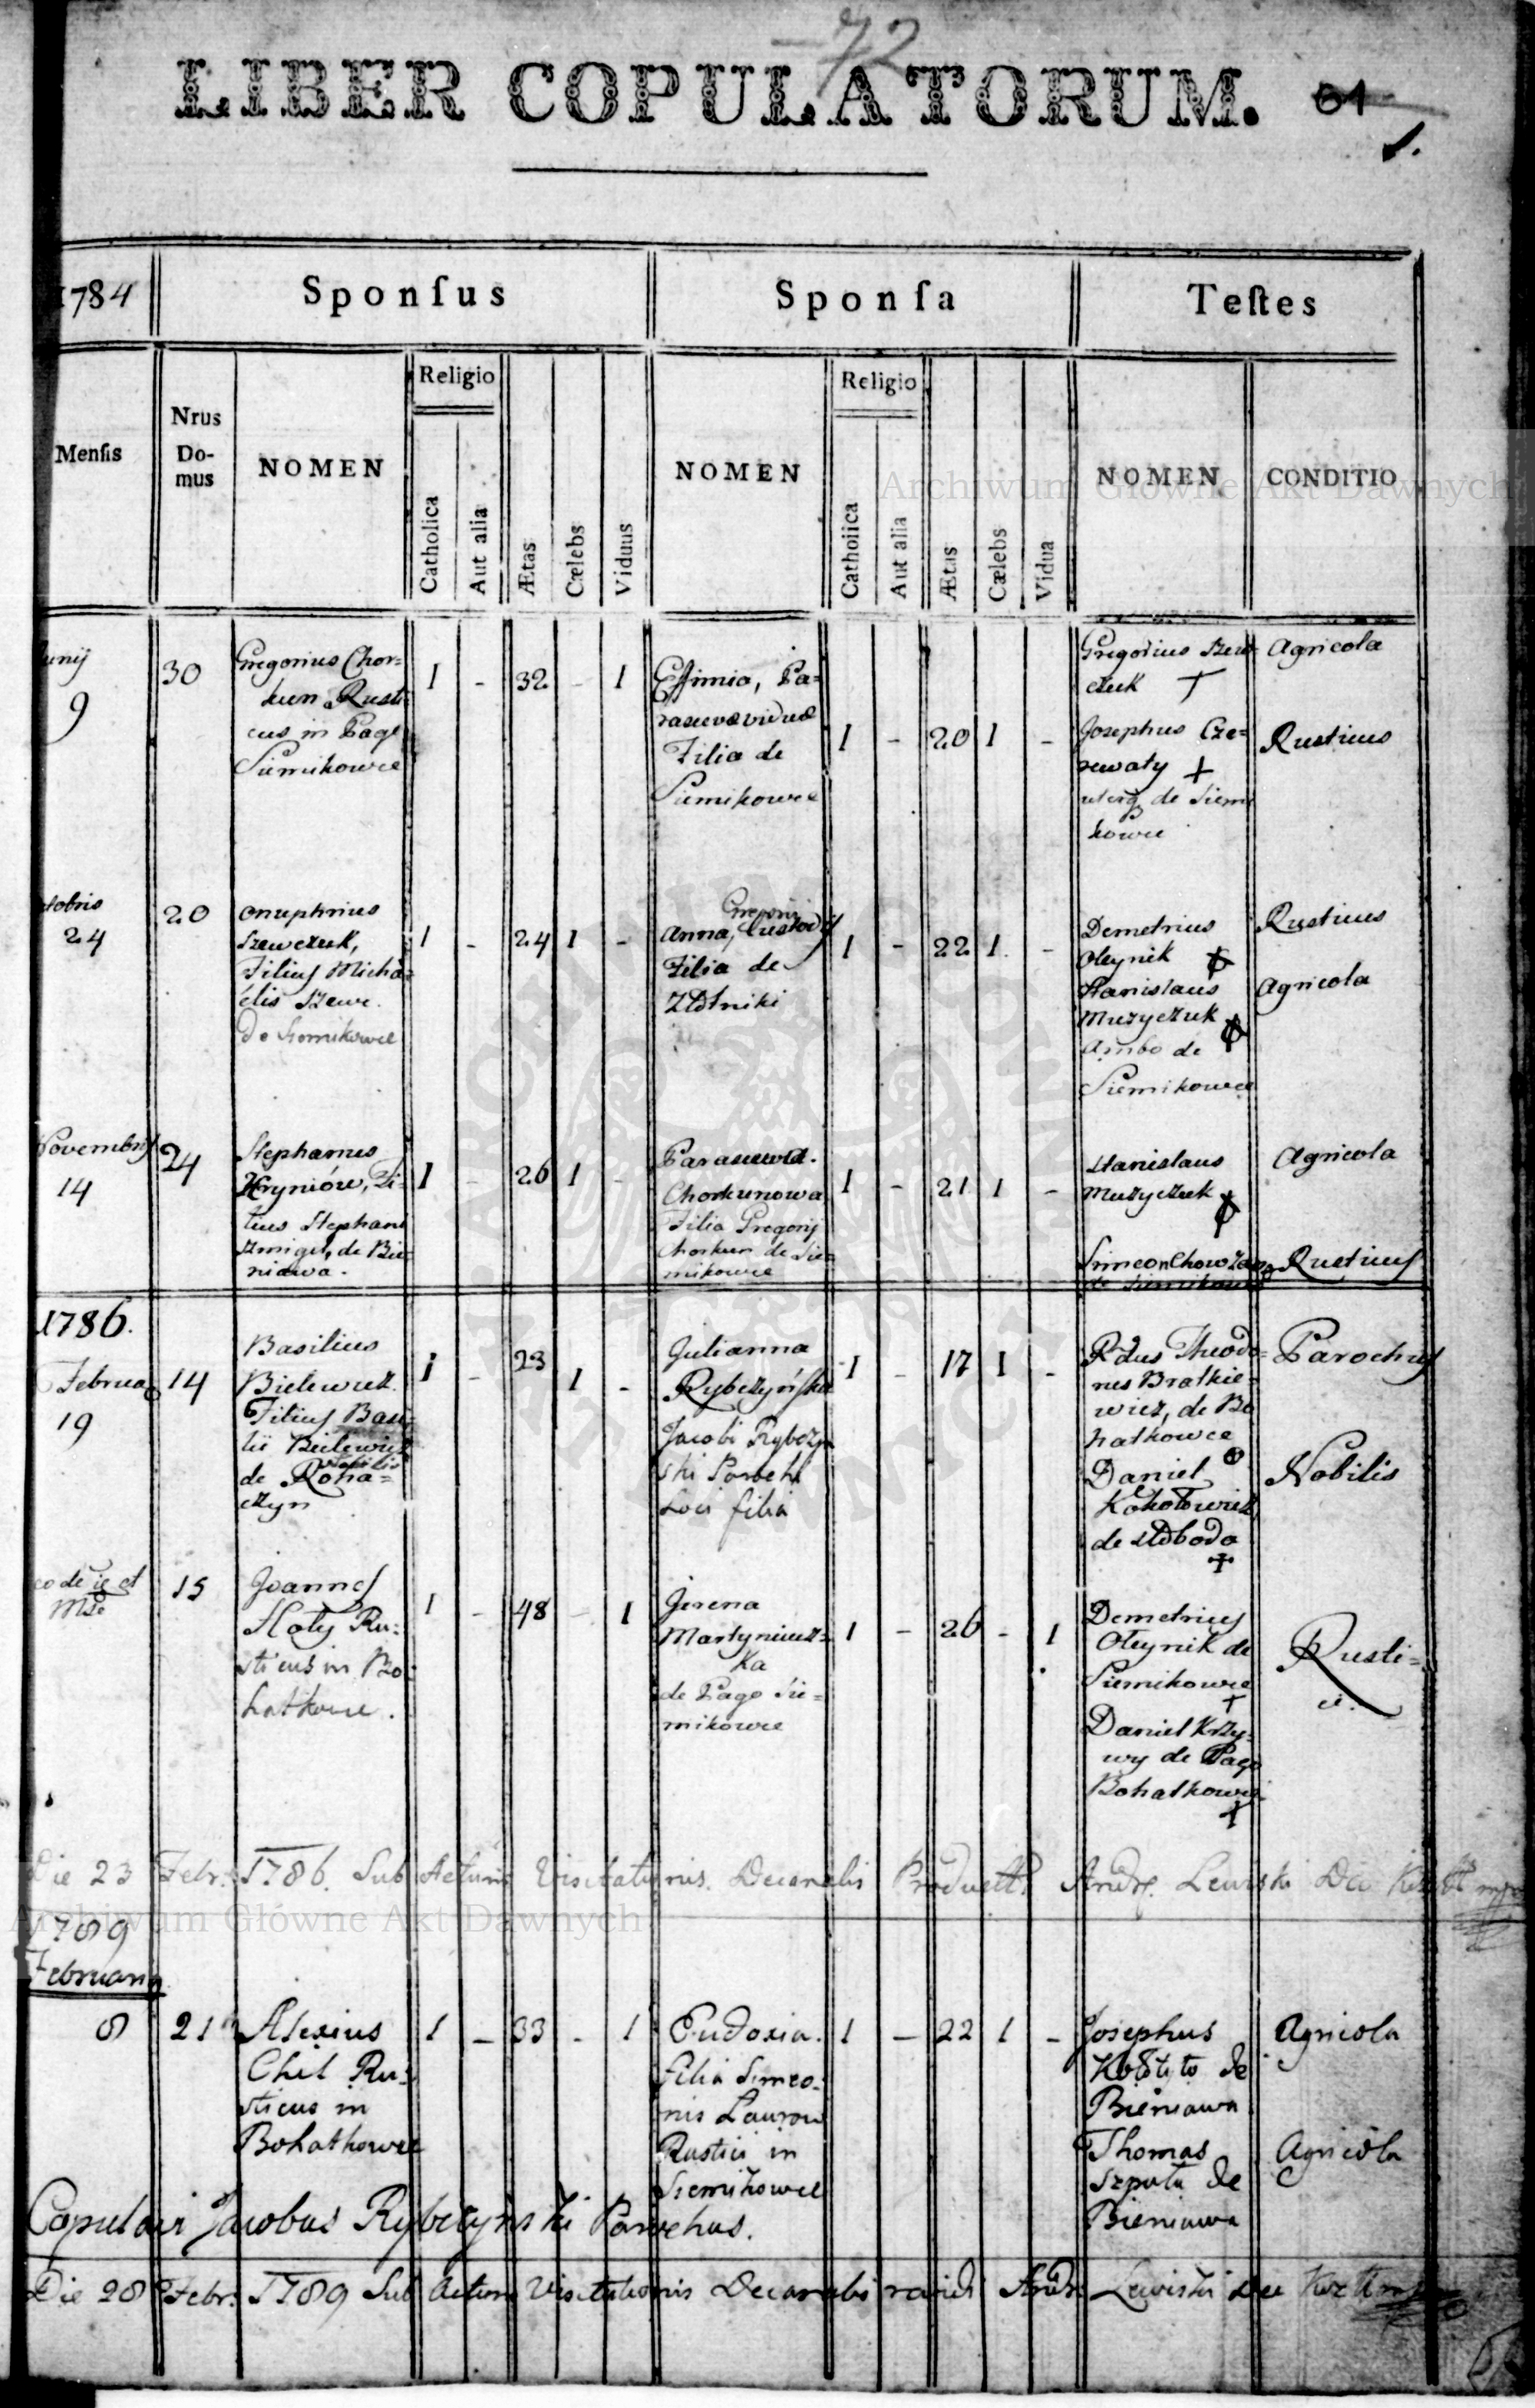 72
LIBER COPULATORUM. 61
1.
1784
Sponſus
Sponſa
Teſtes
Menſis
Nrus
Do-
mus
NOMEN
Religio
Catholica
Aut alia
Ætas
Cælebs
Viduus
NOMEN
Religio
Catholica
Aut alia
Ætas
Cælebs
Vidua
NOMEN
CONDITIO
Archiwum Główne Akt Dawnych
unij
9
30
Gregorius Chor=
kun Rusti
cus in Pago
Siemikowce
1 - 32 - 1
Effimia, Pa=
rascevæ viduæ
Filia de
Siemikowce
1 - 20 1 -
Gregorius Szew
czuk +
Josephus Cze=
rewaty +
uterq de Siemi
kowce
Agricola
Rusticus
tobris
24
20
Onuphrius
Szewczuk,
Filius Micha=
elis Szewc.
de Siemikowce
1 - 24 1 -
Gregorij
Anna, Custodis
Filia de
Złotniki
1 - 22 1 -
Demetrius
Oleynik +
Stanislaus
Muzyczuk +
Ambo de
Siemikowce
Rusticus
Agricola
Novembris
14
24
Stephanus
Hryniów, Fi=
lius Stephani
Szmigel, de Bie=
niawa.
1 - 26 1 -
Parasceva.
Chorkunowa
Filia Gregorij
Chorkun de Sie=
mikowce
1 - 21 1 -
Stanislaus
Muzyczuk +
Simeon
de Siemikowce
Agricola
Rusticus
1786.
Februa
19
14
Basilius
Bielewicz.
Filius Basi=
lii Bielewicz
Nobilis
de Roha=
czyn
1 - 23 1 -
Julianna
Rybczyńska
Jacobi Rybczyn
ski Parochi
Loci filia
1 - 17 1 -
Rdus Theodo=
rus Bratkie=
wicz, de Bo
hatkowce
Daniel
de Słoboda
+
Parochus
Nobilis
eodē ie et
Mse
15
Joannes
Hoły Ru=
sticus in Bo
hatkowce.
1 - 48 - 1
Jerena
Martyniusz=
ka
de Pago Sie=
mikowce
1 - 26 - 1
Demetrius
Oleynik de
Siemikowce
+
Daniel Krzy=
wy de Pago
Bohatkowce
+
Rusti=
ci.
Die 23 Febr. 1786. Sub Actum Visitationis Decanalis Andr. Lewiski
Archiwum Główne Akt Dawnych
1789
Februarij
8
21
Alexius
Chil Ru=
sticus in
Bohatkowce
1 - 33 - 1
Eudoxia.
filia Simeo=
nis Laurow
Rustici in
Siemikowce
1 - 22 1 -
Josephus
de
Bieniawa
Thomas
Szpula de
Bieniawa
Agricola
Agricola
Copulavi Jacobus Rybczyński Parochus.
Die 28 Febr. 1789 Sub Actum Visitationis Decanalis Andr. Lewiski